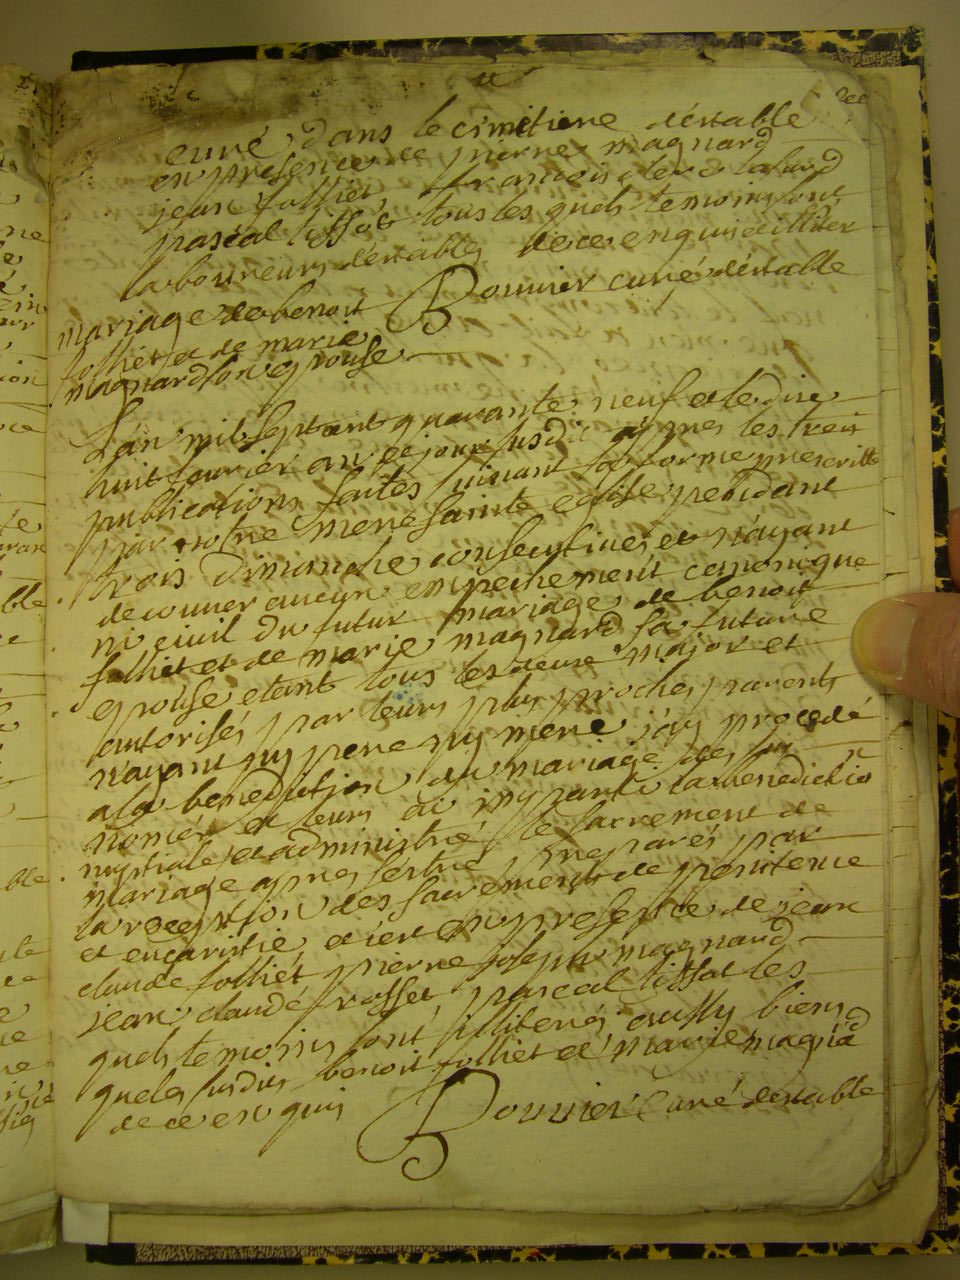 curé dans le cimetiere d'estable
en presence de pierre magnard
jean folliet francois
pascal tissot tous les quels temoins sont
laboureurs d'estables de ce enquis illiter
Bouvier curé d'estable
mariage de benoit
folliet et de marie
magnard son epouse
L'an mil sept cent quarante neuf et le dix
huit fevrier au dejour susdit apres les trois
publications faites suivant la forme prescritte
par notre mere sainte eglise pendant
trois dimanche consecutives et n'ayant
decouver aucun empechement canonique
ni civil du futur mariage de benoit
folliet et de marie magnard sa future
epouse etant tous les deux major et
autorisés par leurs plus proches parents
n'ayant ny pere ny mere j'ay procedé
a la benediction du mariage des sus
només et leurs ai imparti la benedictio
nuptiale et administré le sacrement de
mariage apres s'estre preparés par
la reception des sacrements de penitence
et eucaristie et ict en presence de jean
claude folliet pierre joseph magnard
jean claude rosset pascal tissot les
quels temoins ont illiterés aussy biens
que les susdits benoit folliet et marie magnad
de ce enquis
Bouvier curé d'estable